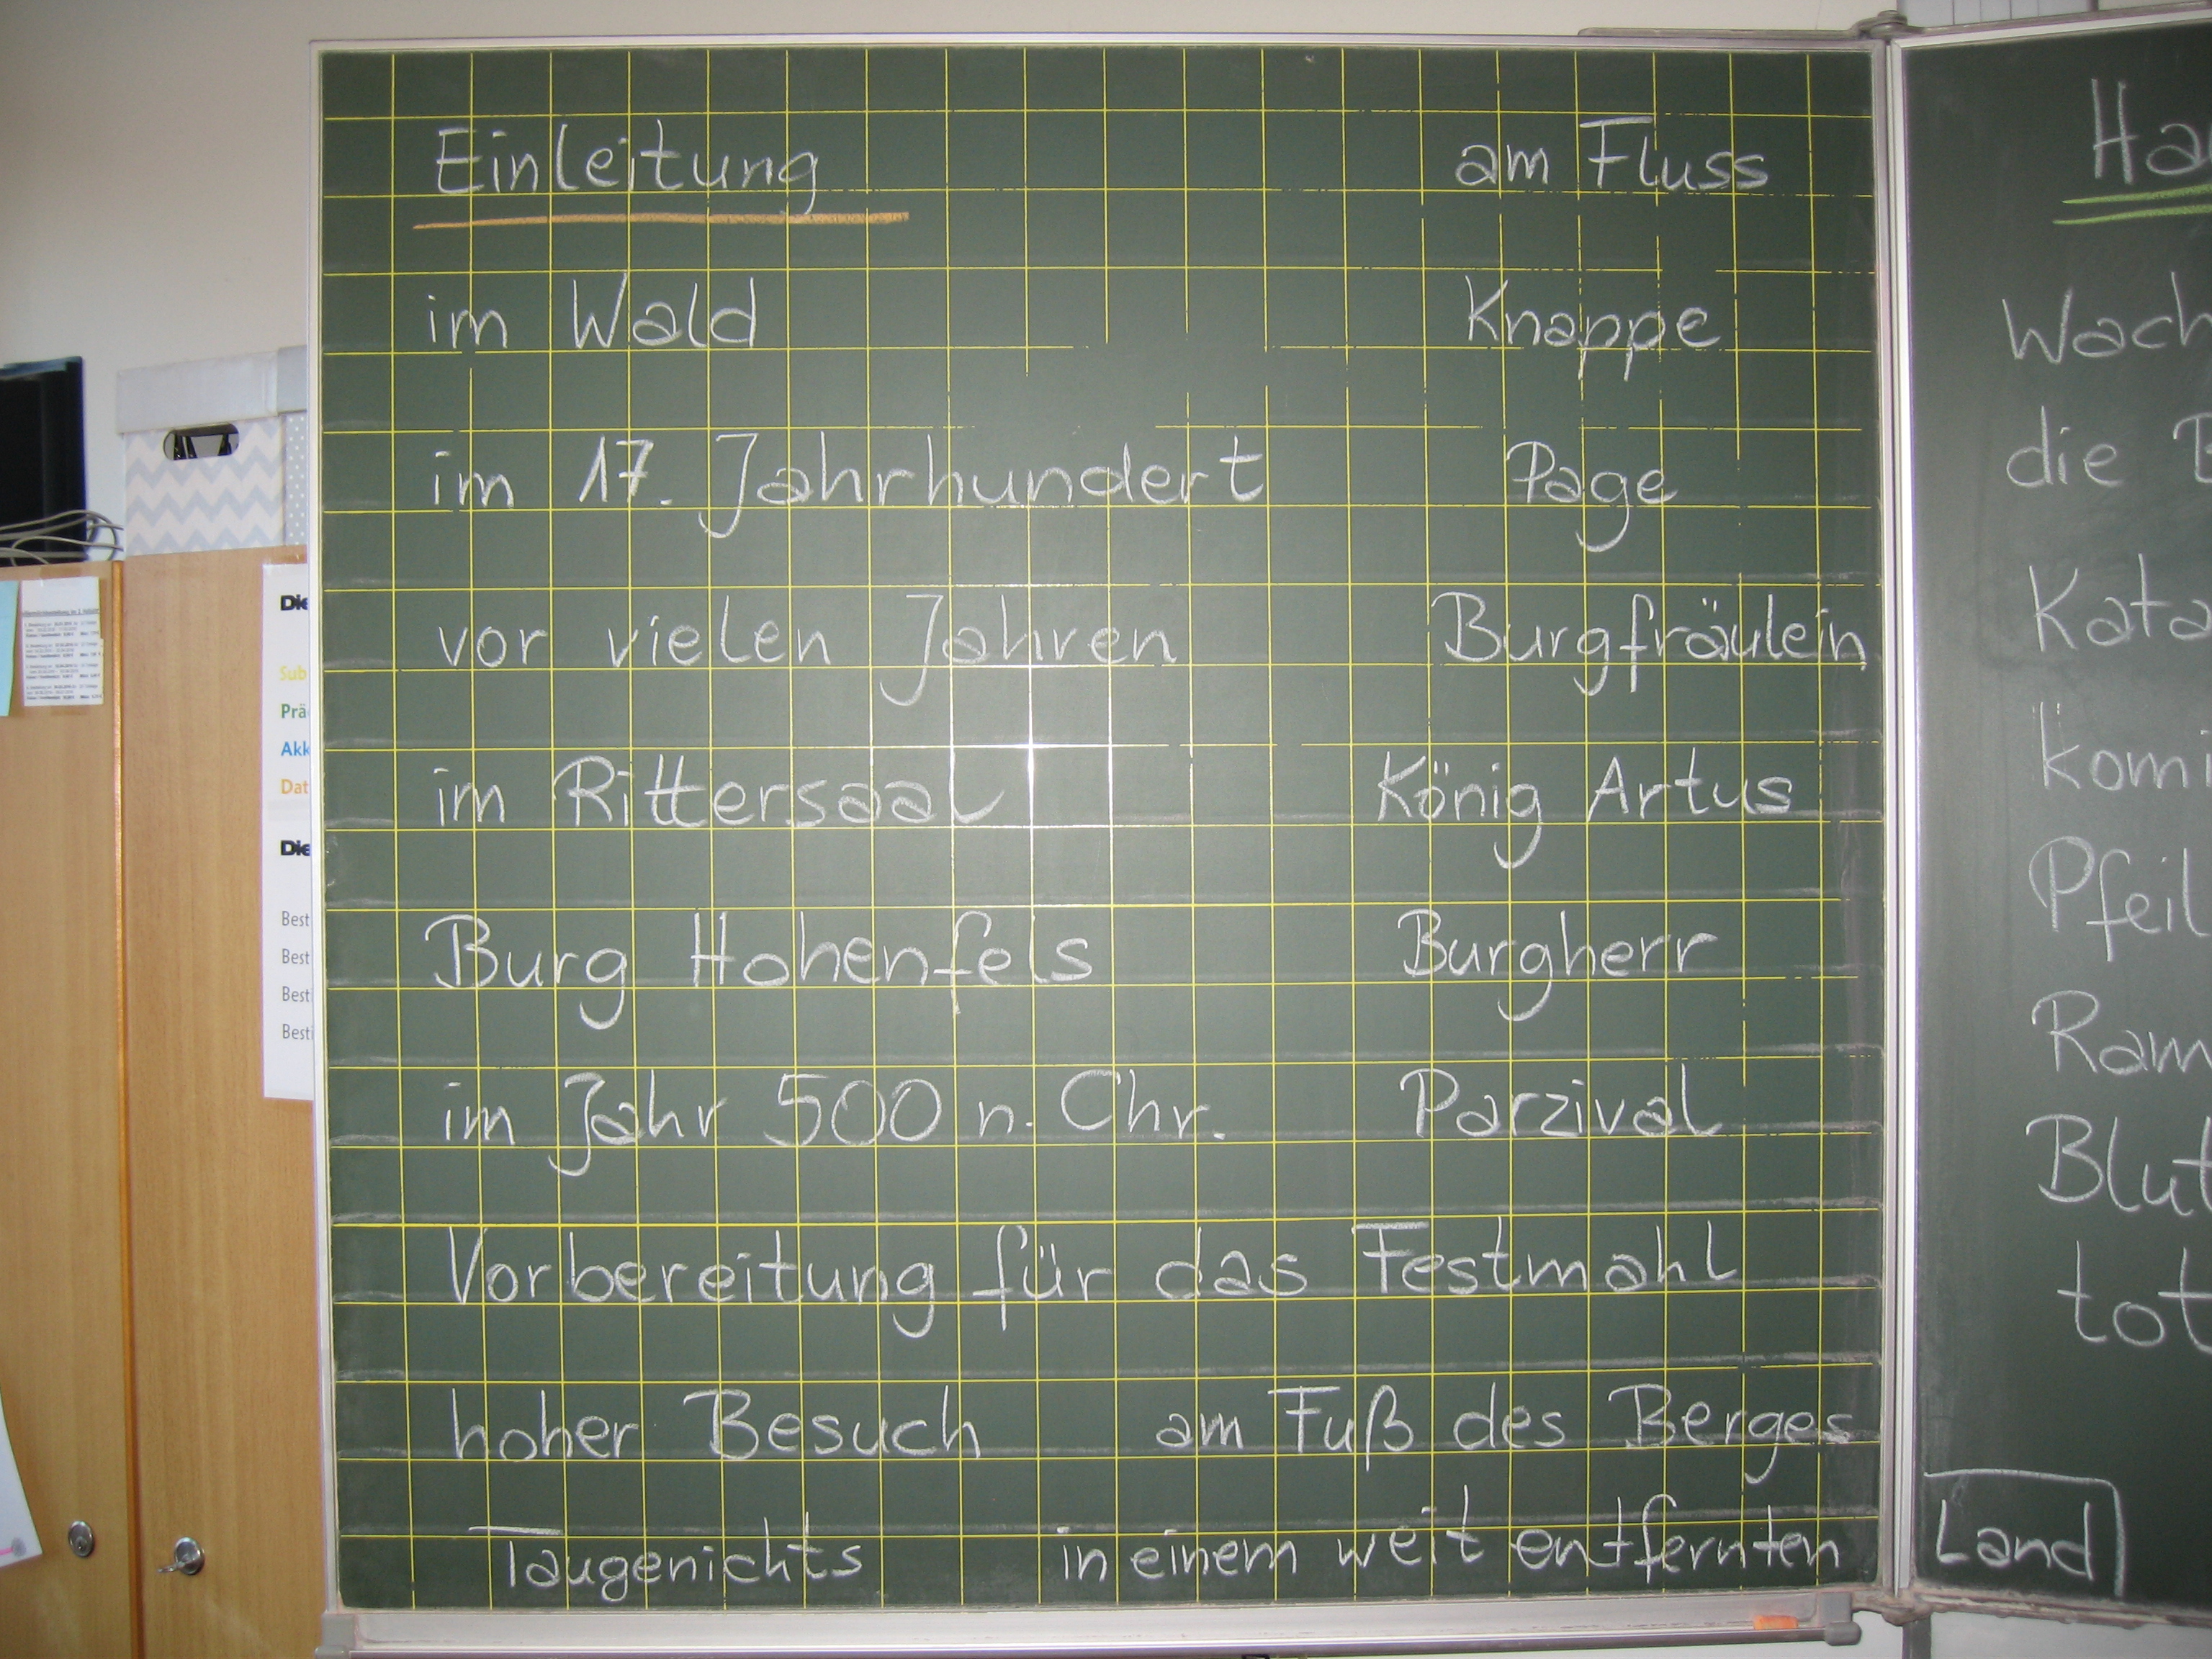 Einleitung
im Wald
im 17. Jahrhundert
vor vielen Jahren
im Rittersaal
Burg Hohenfels
im Jahr 500 n. Chr.
am Fluss
Knappe
Page
Burgfräulein
König Artus
Burgherr
Parzival
Vorbereitung für das Festmahl
hoher Besuch
am Fuß des Berges
Taugenichts
in einem weit entfernten Land
Ha
Wach
die B
Kata
komi
Pfeil
Ram
Blut
tot
Die
Sub
Prä
Akk
Dat
Die
Best
Best
Best
Besti